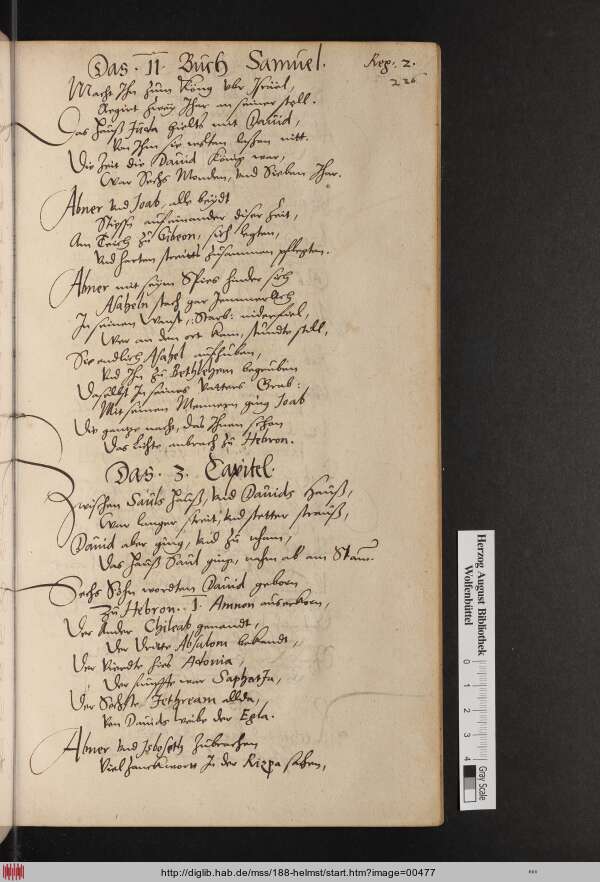 Das. II. Buch Samuel.
Reg: 2.
226
Macht Ihn zum König vbr Israel,
Regirt zwey Jhar an seiner stell.
Das Hauß Juda hielts mit Dauid,
Von Ihm sie wolten lassen nitt.
Die Zeit die Dauid König war,
War Sechs Monden, vnd Sieben Jhar.
Abner vnd Joab, alle beydt
Stissen auf einander diser Zeit,
Am Teich zu Gibeon, sich legten,
Vnd harten streitt zusammen pflegten.
Abner mit seim Spies hinder sich
Asaheln stach gar Jemmerlich
In seinen Wanst, Starb: niderfiel,
Wer an den ort kam, stundte still,
Sie endlich Asahel aufhuben,
Vnd Ihn zu Bethlehem begruben
Daselbst In seines Vatters Grab:
Mit seinen Mennern ging Joab
Die gantze nacht, das Ihnen schon
Das Lichte anbrach zu Hebron.
Das. 3. Capitel.
Zwischen Sauls Hauß, vnd Dauids Hauß,
War langer streit, vnd stetter strauß,
Dauid aber ging, vnd zu nham,
Das Hauß Saul ging, nahm ab am Stam.
Sechs Söhn wordten Dauid geborn
Zu Hebron. I. Amnon auserkorn,
Der Ander Chileab genandt,
Der Dritte Absalom bekandt,
Der Vierdte hies Adonia,
Der fünffte war Saphatja,
Der Sechste Jethream allda,
Von Dauids weibe der Egla.
Abner vnd Isboseth zubrachen
Viel hanckwort In der Rizpa sachen,
Herzog August Bibliothek
Wolfenbüttel
0 1 2 3 4
Gray Scale
http://diglib.hab.de/mss/188-helmst/start.htm?image=00477